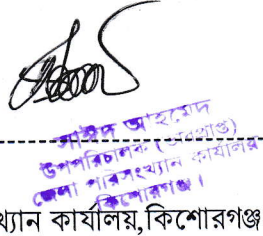 সাঈদ আহমেদ
উপপরিচালক (ভারপ্রাপ্ত)
জেলা পরিসংখ্যান কার্যালয়
কিশোরগঞ্জ।
খ্যান কার্যালয়, কিশোরগঞ্জ